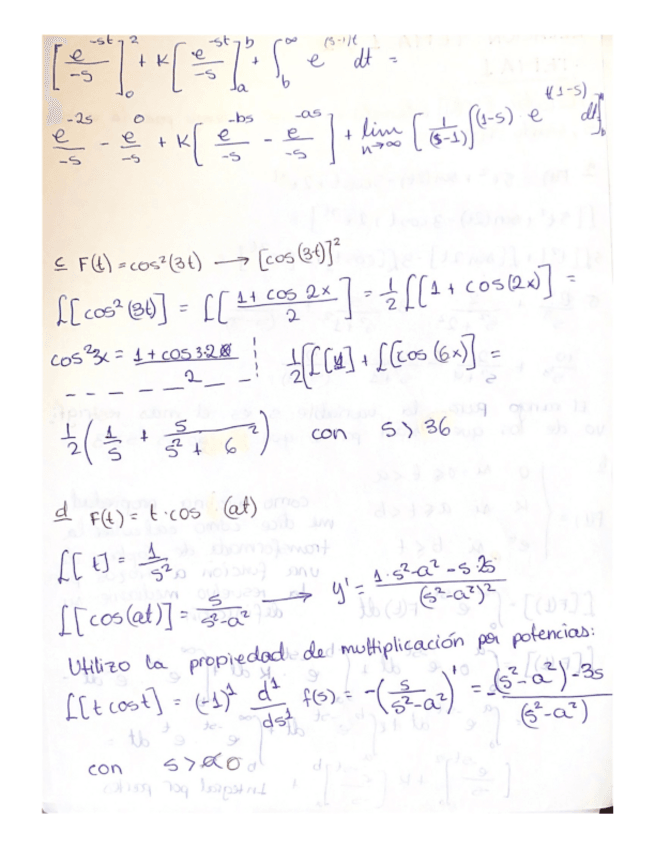 [e^-st/-s]₀² + K[e^-st/-s]ₐᵇ + ∫_b^∞ e^(s-1)t dt =
e^-2s/-s - e^0/-s + K[e^-bs/-s - e^-as/-s] + lim n→∞ [1/(s-1) ∫(1-s) e^t(1-s) dt]_b
c F(t) = cos²(3t) → [cos(3t)]²
L[cos²(3t)] = L[1+cos 2x/2] = 1/2 L[1 + cos(2x)] =
cos²3x = 1+cos 3·2x/2 | 1/2[L[1] + L[cos(6x)] =
1/2(1/s + s/s²+6²) con s>36
d F(t) = t·cos (at)
L[t] = 1/s²
L[cos(at)] = s/s²-a² → y' = 1·s²-a²-s·2s/(s²-a²)²
Utilizo la propiedad de multiplicación por potencias:
L[t cos t] = (-1)¹ d¹/ds¹ f(s) = -(s/s²-a²)' = -(s²-a²)-3s/(s²-a²)
con s>